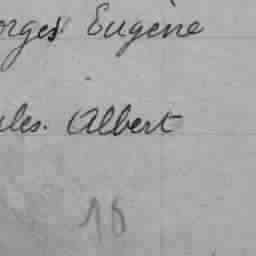 orges Eugène
ules. Albert
18